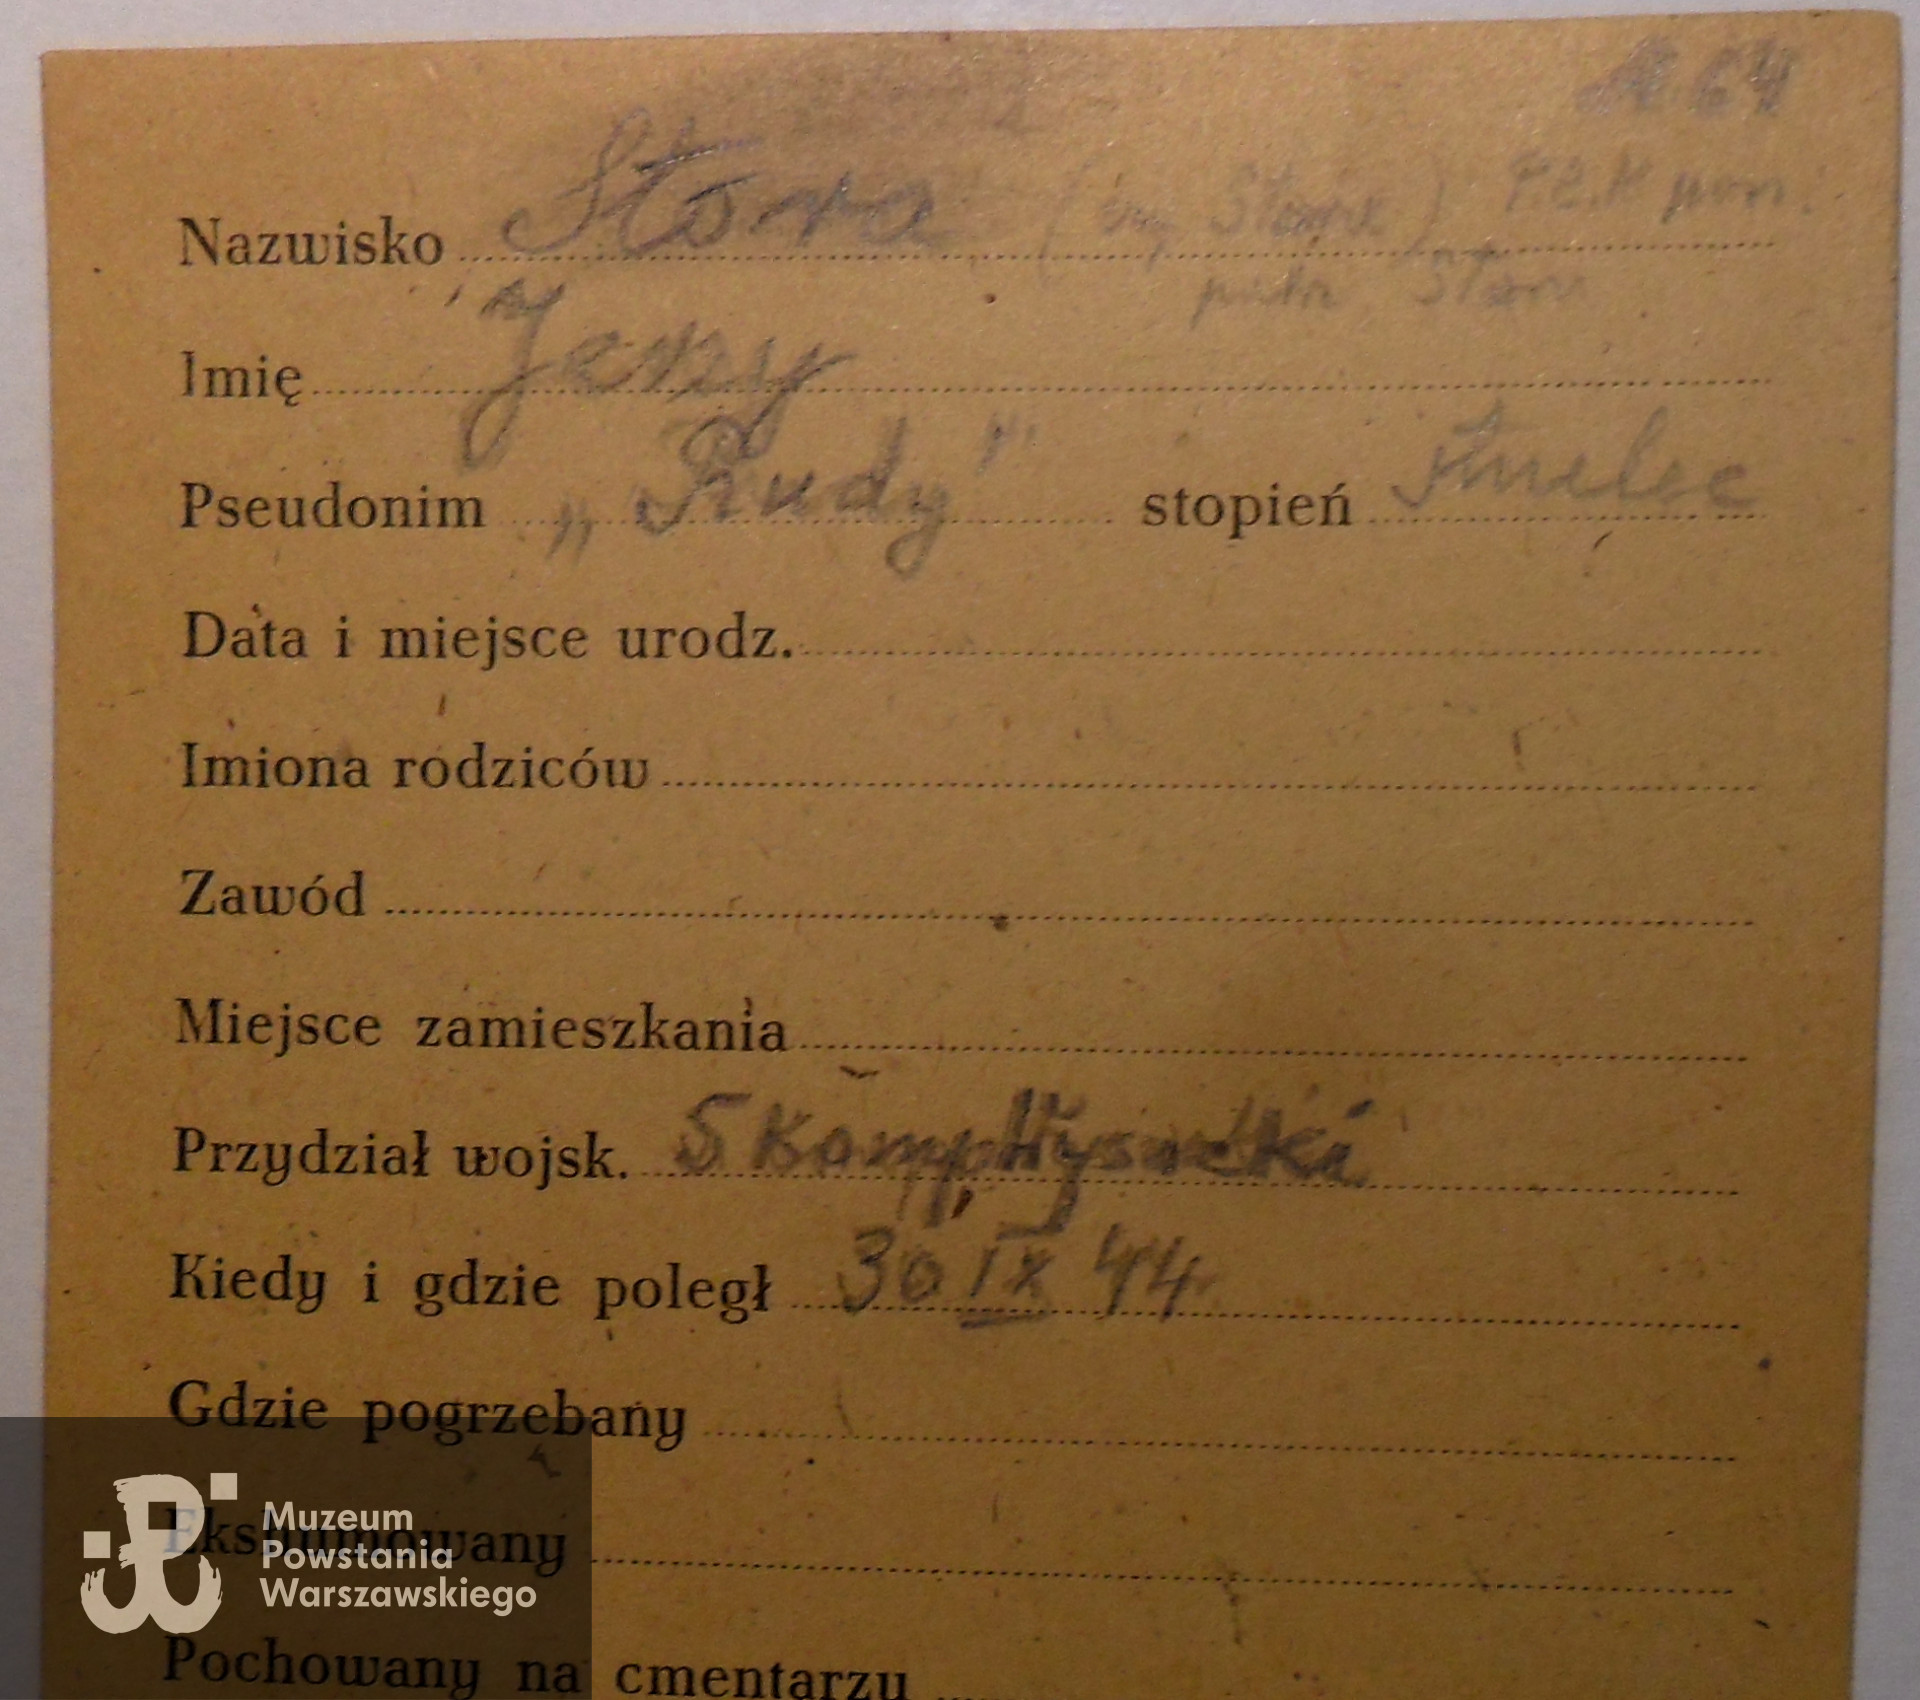 64
Nazwisko Stora
Imię Jerzy
Pseudonim „Rudy" stopień strzelec
Data i miejsce urodz.
Imiona rodziców
Zawód
Miejsce zamieszkania
Przydział wojsk. 5 Komp, Wysocki
Kiedy i gdzie poległ 30 IX 44
Gdzie pogrzebany
Ekshumowany
Pochowany na cmentarzu
Muzeum
Powstania
Warszawskiego